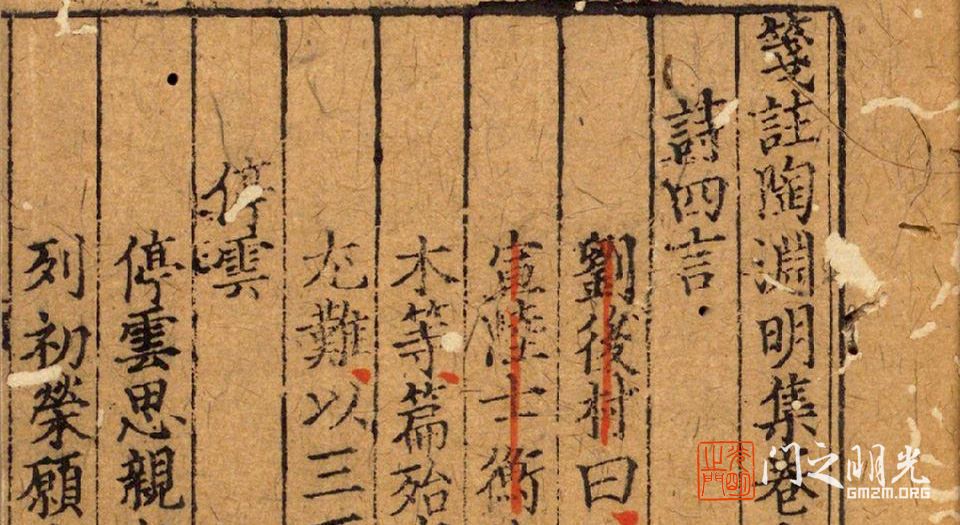 箋註陶淵明集卷
詩四言
劉後村曰
陸士衡
木等篇殆
尤難以三
停雲
停雲思親
列初榮願
门之明光
GMZM.ORG